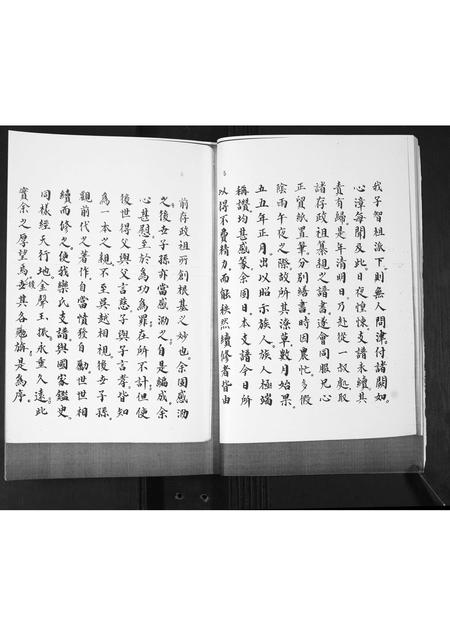 我子智祖派下則無人問津付諸闕如。
心濤每聞及此日夜惶悚支譜未續其
責有歸是年清明日乃赴從一叔處取
諸存政祖纂親之譜書遂會同服兄心
正貿紙置筆分別繕書時因農忙多假
陰雨午夜之際故所其潦草數月始果。
五丑年正月出以昭示族人族人極端
稱讚均甚感篆余囿日本支譜今日所
以得不費精力而能秩然續修者皆由
前存政祖所創根基之妙也余固感泐
之後世子孫亦當感泐之自是編成余
心甚慰至於為功為罪在所不計但使
後世得父與父言慈子與子言孝皆知
為一本之親不至吳越相視後世子孫
觀前代之著作自當憤發自勵世世相
續而修之使我欒氏支譜與國家鑑史
同樣經天行地金聲玉振永垂久遠此
實余之厚望焉後世其各勉旃是為序